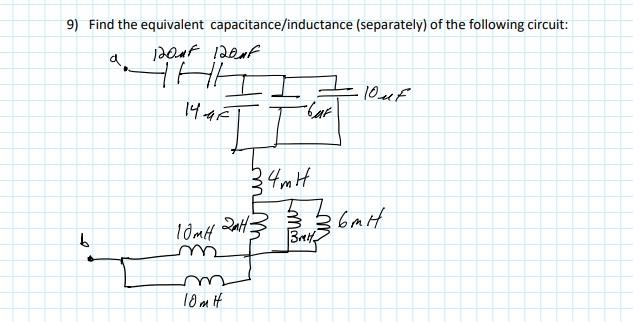 9) Find the equivalent capacitance/inductance (separately) of the following circuit:
a 120uF 120uF
14uF 6uF 10uF
4mH
10mH 2mH 3mH 6mH
b
10mH